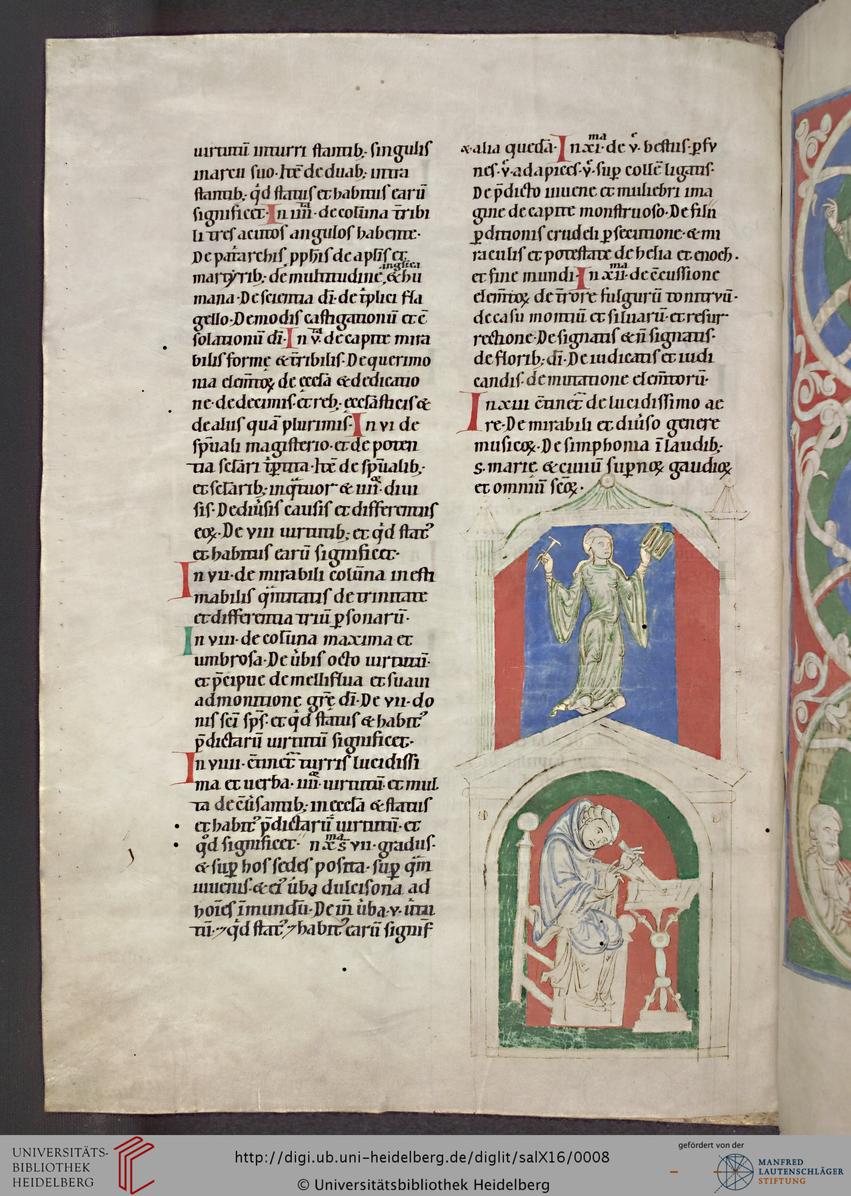 uirtutū inturri stantib; singulis
in arcu suo. Itē de duab; intra
stantib; qͥd status et habitus earū
significet. In iiii. de colūna trībi
li tres acutos angulos habente.
De pat̄archis, ꝓphis de apl̄is et
martyrib; de multitudine angelica, & hu
mana. De scientia dī. de t̄plici fla
gello. De modis castigationū et c̄
solationū dī. In v͛. de capite mira
bilis forme & t̄ribilis. De querimo
nia elem̄toꝝ de eccl̄a & dedicatio
ne. de decimis. et reb; eccl̄asticis &
de aliis quā plurimis. In vi de
spūali magisterio. et de poten
tia sclāri t̄ptita. Itē de spūalib;
et sclārib; in qͣtuor & iiii. diui
sis. De diūsis causis et differentiis
eoꝝ. De viii uirtutib; et qͥd statꝰ
et habitus earū significet.
In vii. de mirabili colūna inesti
mabilis qͣntitatis de trinitate
et differentia triū ꝑsonarū.
In viii. de colūna maxima et
umbrosa. De ūbis octo uirtutū.
et p̄cipue de melliflua et suaui
admonitione gr̄e dī. De vii. do
nis sc̄i sp̄s. et qͥd status & habitꝰ
p̄dictarū uirtutū significet.
In viiii c̄tinet̄ turris lucidissi
ma et uerba. iiii. uirtutū. et mul
ta de c̄ūsantib; in eccl̄a & status
et habitꝰ p̄dictarū uirtutū. et
qͥd significet. n xͫᵃ s̄ vii. gradus.
& suꝑ hos sedes posita. suꝑ qͣm
iuuenis. & eiꝰ ūba dulcisona ad
hoīes ī mundū. De īn ūba. v. uirtu
tū. ⁊ qͥd statꝰ ⁊ habitꝰ earū signif̄
& alia quedā. In xi.ᵐᵃ de v͛. bestiis. ꝑ fu
nes. v͛. ad apices. v͛. suꝑ collē ligatis.
De p̄dicto iuuene et muliebri ima
gine de capite monstruoso. De filii
ꝑditionis crudeli ꝑsecutione. & mi
raculis et potestate de helia et enoch.
et fine mundi. In xii.ᵐᵃ de c̄cussione
elem̄toꝝ de t̄rore fulgurū tonitruū.
de casu montiū et siluarū. et resur
rectione. De signatis & n̄ signatis.
de florib; dī. De iudicatis et iudi
candis. de mutatione elem̄torū.
In xiii c̄tinet̄ de lucidissimo ae
re. De mirabili et diūso genere
musicoꝝ. De simphonia ī laudib;
s. marie & ciuiū suꝑnoꝝ gaudioꝝ
et omniū sc̄oꝝ.
UNIVERSITÄTS-
BIBLIOTHEK
HEIDELBERG
http://digi.ub.uni-heidelberg.de/diglit/salX16/0008
© Universitätsbibliothek Heidelberg
gefördert von der
MANFRED
LAUTENSCHLÄGER
STIFTUNG